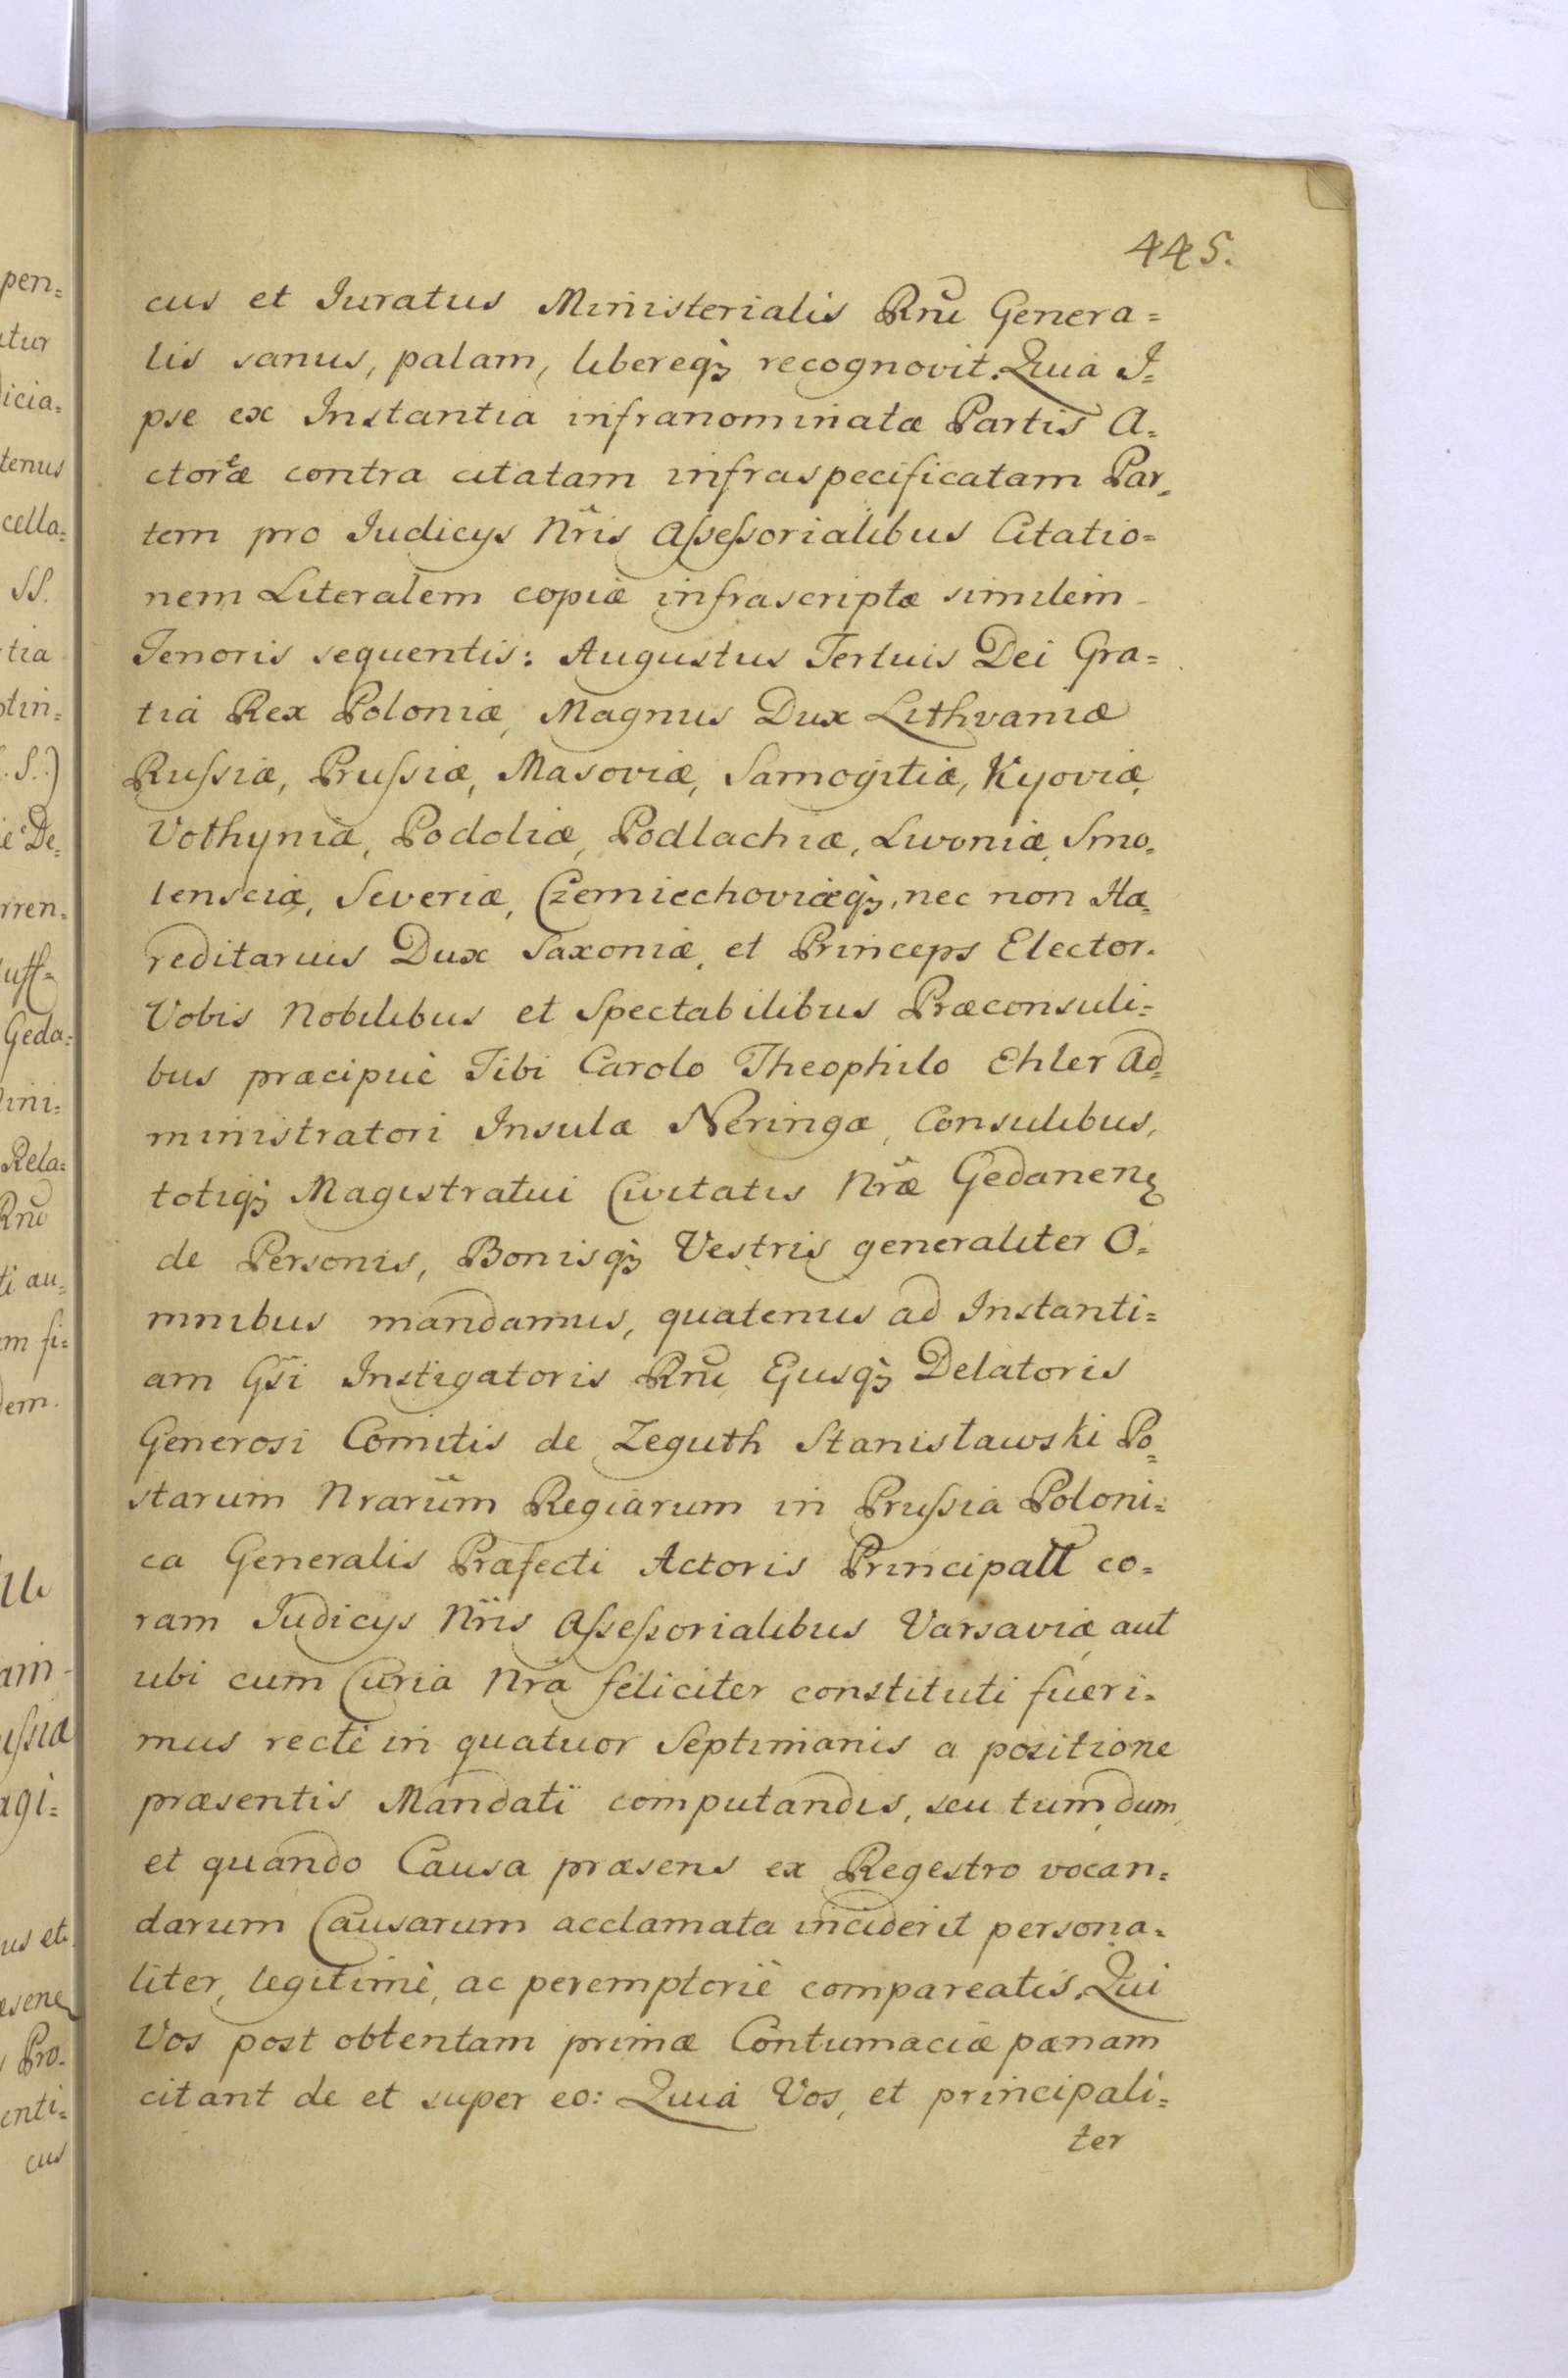 445.
cus et Iuratus Ministerialis Rnũ Genera=
lis sanus, palam, libereqꝫ recognovit. Quia I=
pse ex Instantia infranominatæ Partis A=
ctoreæ contra citatam infraspecificatam Par=
tem pro Iudicys Nr̃is Aſseſsorialibus Citatio=
nem Literalem copiæ infrascriptæ similem
Tenoris sequentis: Augustus Tertius Dei Gra=
tia Rex Poloniæ, Magnus Dux Lithvaniæ
Ruſsiæ, Pruſsiæ, Masoviæ, Samogitiæ, Kyoviæ,
Vothyniæ, Podoliæ, Podlachiæ, Livoniæ, Smo=
lensciæ, Severiæ, Czerniechoviæqꝫ, nec non Hæ=
reditarius Dux Saxoniæ, et Princeps Elector.
Vobis Nobilibus et Spectabilibus Præconsuli=
bus præcipuè Tibi Carolo Theophilo Ehler Ad=
ministratori Insulæ Neringæ, Consulibus,
totiqꝫ Magistratui Civitatis Nr̃æ Gedanenꝫ
de Personis, Bonisqꝫ Vestris generaliter O=
mnibus mandamus, quatenus ad Instanti=
am Gs̃i Instigatoris Rnũ Ejusqꝫ Delatoris
Generosi Comitis de Zeguth Stanisławski Po=
starum Nrarũm Regiarum in Pruſsia Poloni=
ca Generalis Præfecti Actoris Principall co=
ram Iudicys Nr̃is Aſseſsorialibus Varsaviæ aut
ubi cum Curia Nrã feliciter constituti fueri=
mus rectè in quatuor Septimanis a positione
præsentis Mandati computandis, seu tum, dum,
et quando Causa præsens ex Regestro vocan=
darum Causarum acclamata inciderit persona=
liter, legitimè, ac peremptoriè compareatis. Qui
Vos post obtentam primæ Contumaciæ pænam
citant de et super eo: Quia Vos, et principali=
ter
pen=
atur
dicia=
tenus
cella=
SS.
tia
S.)
De=
rren=
uff=
Geda=
Rela=
Rnũ
ti au=
m fi=
dem.
agi=
us et
Pro=
enti=
cus